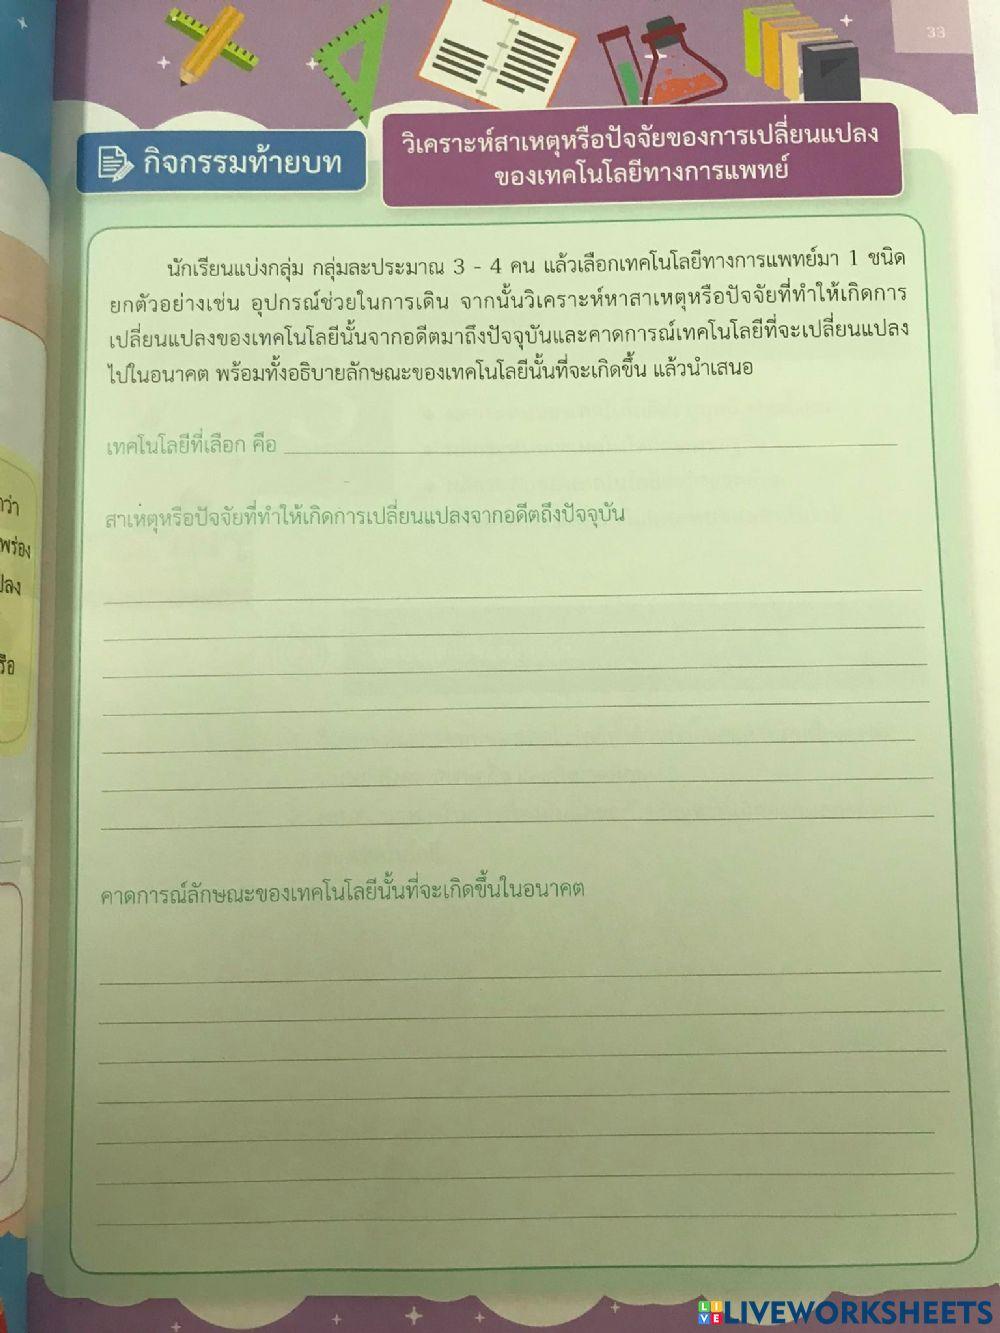 33
กิจกรรมท้ายบท
วิเคราะห์สาเหตุหรือปัจจัยของการเปลี่ยนแปลง
ของเทคโนโลยีทางการแพทย์
นักเรียนแบ่งกลุ่ม กลุ่มละประมาณ 3 - 4 คน แล้วเลือกเทคโนโลยีทางการแพทย์มา 1 ชนิด
ยกตัวอย่างเช่น อุปกรณ์ช่วยในการเดิน จากนั้นวิเคราะห์หาสาเหตุหรือปัจจัยที่ทำให้เกิดการ
เปลี่ยนแปลงของเทคโนโลยีนั้นจากอดีตมาถึงปัจจุบันและคาดการณ์เทคโนโลยีที่จะเปลี่ยนแปลง
ไปในอนาคต พร้อมทั้งอธิบายลักษณะของเทคโนโลยีนั้นที่จะเกิดขึ้น แล้วนำเสนอ
เทคโนโลยีที่เลือก คือ
สาเหตุหรือปัจจัยที่ทำให้เกิดการเปลี่ยนแปลงจากอดีตถึงปัจจุบัน
คาดการณ์ลักษณะของเทคโนโลยีนั้นที่จะเกิดขึ้นในอนาคต
LIVEWORKSHEETS